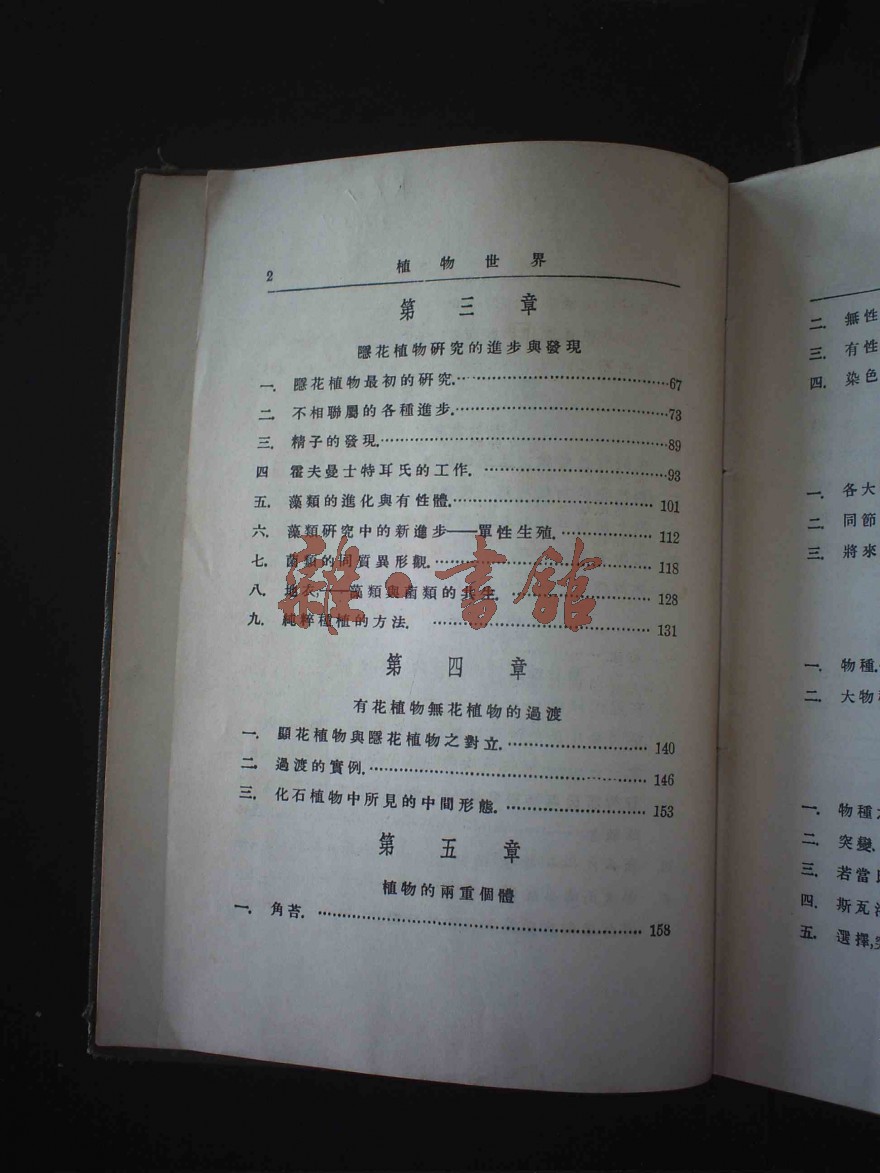 2 植物世界
第三章
隱花植物研究的進步與發現
一. 隱花植物最初的研究.……67
二 不相聯屬的各種進步.……73
三. 精子的發現.……89
四 霍夫曼士特耳氏的工作.……93
五. 藻類的進化與有性體.……101
六. 藻類研究中的新進步——單性生殖.……112
七. 菌類的同質異形觀.……118
八. 地衣——藻類與菌類的共生.……128
九. 純粹種植的方法.……131
第四章
有花植物無花植物的過渡
一. 顯花植物與隱花植物之對立.……140
二. 過渡的實例.……146
三. 化石植物中所見的中間形態.……153
第五章
植物的兩重個體
一. 角苔.……158
雜·書館
二. 無性
三. 有性
四. 染色
一. 各大
二 同節
三. 將來
一. 物種.
二. 大物
一. 物種
二. 突變.
三. 若當
四. 斯瓦
五. 選擇,